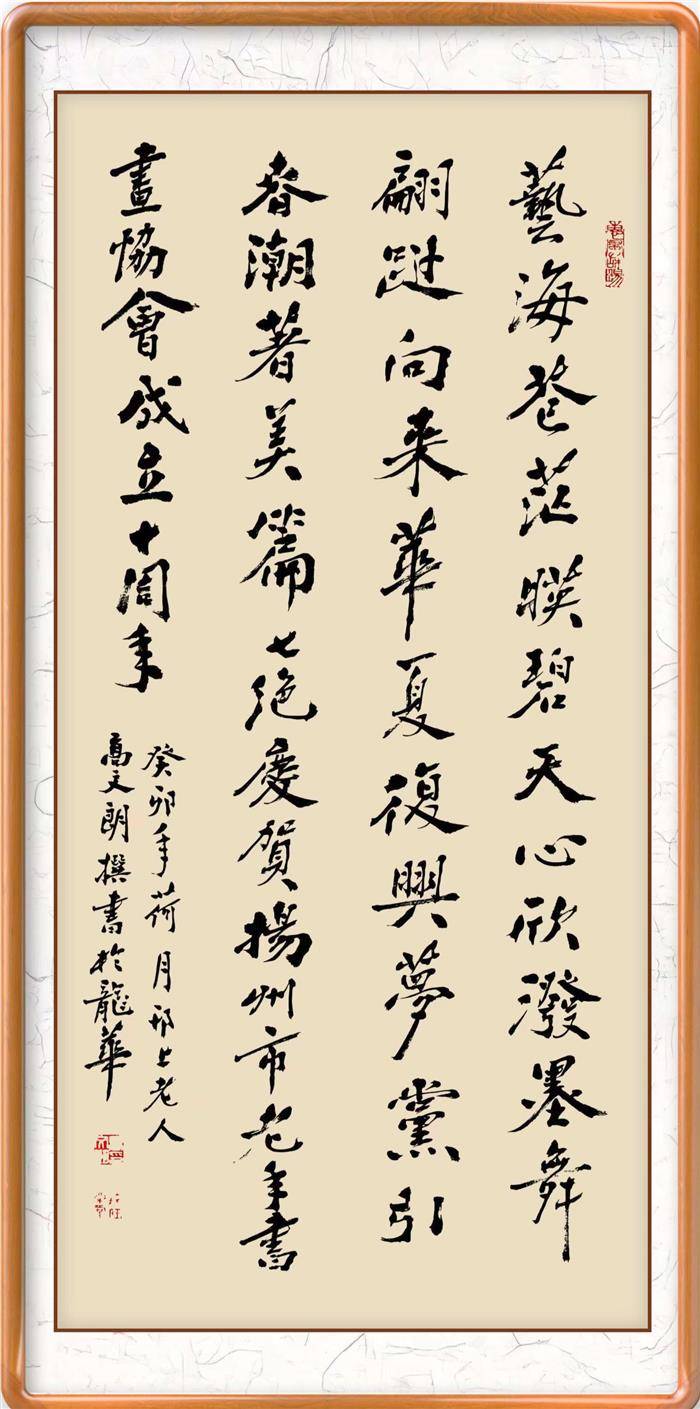 藝海苍茫映碧天心欣潑墨舞
翩跹向来華夏復興夢黨引
春潮著美篇七绝慶賀揚州市老年書
畫協會成立十周年
癸卯年荷月邗上老人
高文朗撰書於龍華